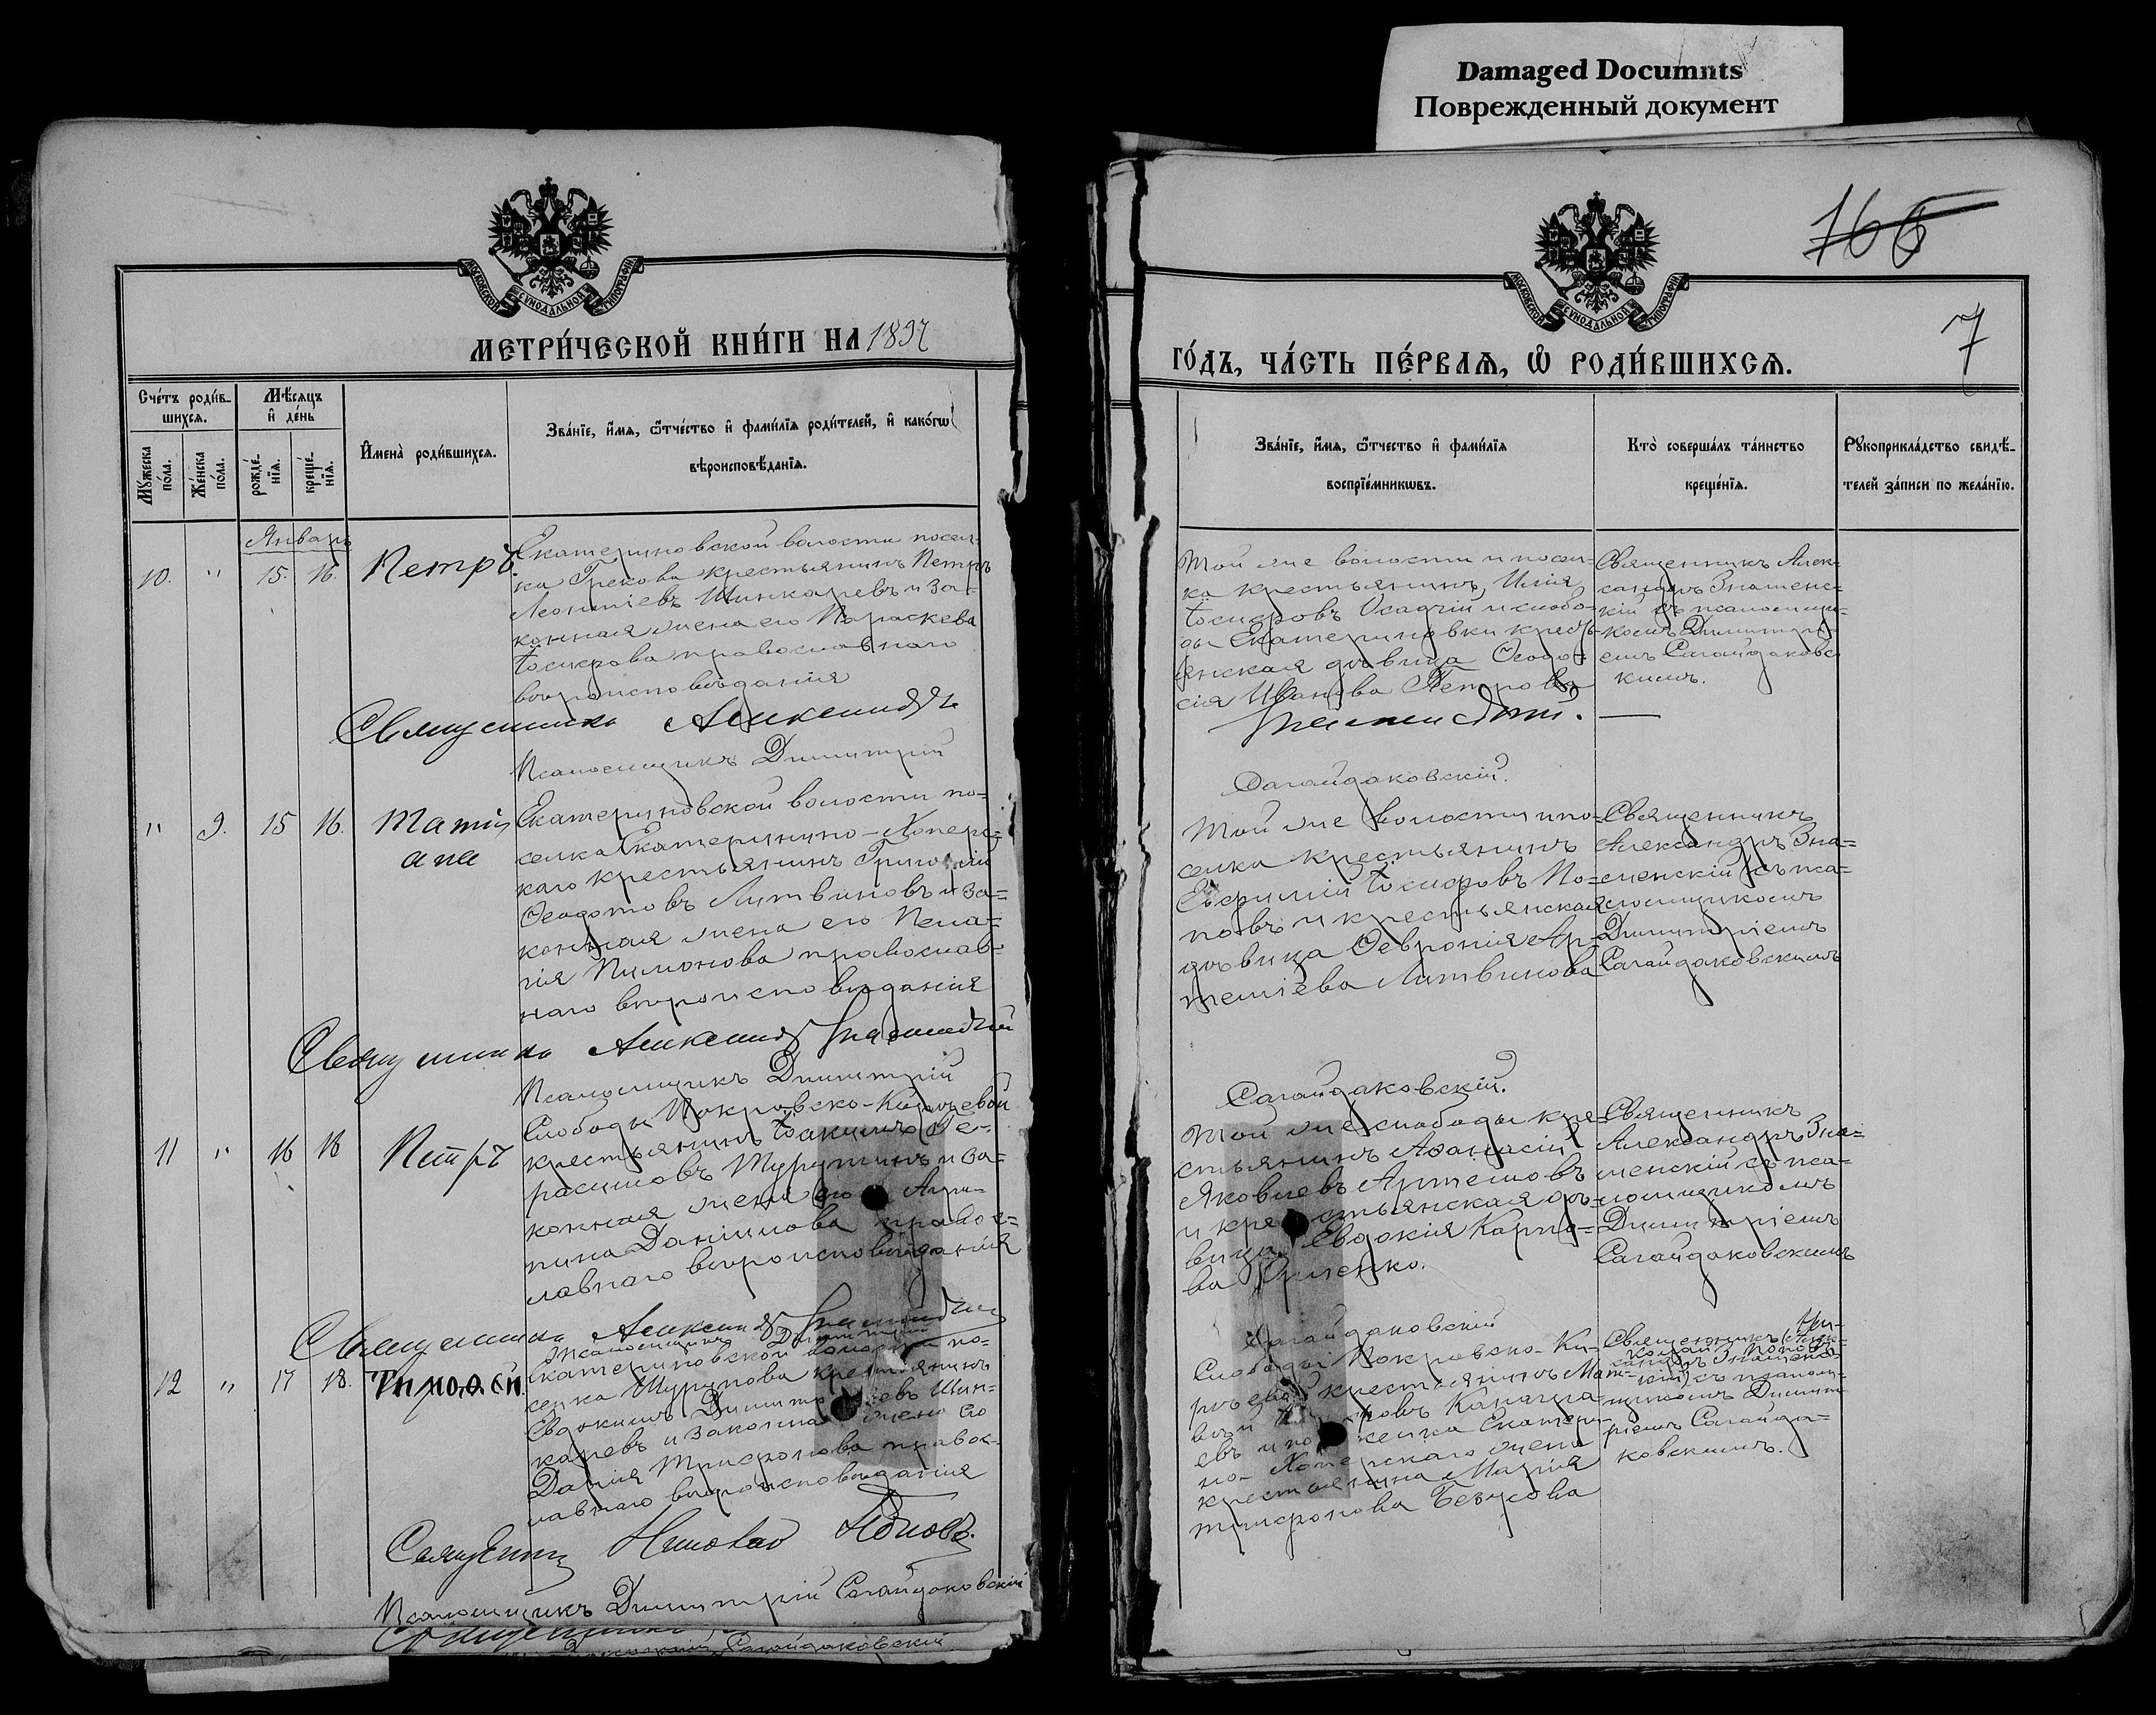 Damaged Documnts
Поврежденный документ
166
7
МОСКОВСКОЙ СѴНОДАЛЬНОЙ ТИПОГРАФІИ
МОСКОВСКОЙ СѴНОДАЛЬНОЙ ТИПОГРАФІИ
МЕТРИ́ЧЕСКОЙ КНИ́ГИ НА 1897
ГО́ДЪ, ЧА́СТЬ ПЕ́РВАЯ, Ѡ҆ РОДИ́ВШИХСЯ.
Сче́тъ роди́в-
шихся.
Му́жеска по́ла.
Же́нска по́ла.
Мѣ́сяцъ
и҆ де́нь
рожде́-
нїя.
креще́-
нїя.
И҆мена̀ роди́вшихся.
Зва́нїе, и҆́мя, ѻ҆́тчество и҆ фами́лїя роди́телей, и҆ како́гѡ
вѣроисповѣ́данїя.
Зва́нїе, и҆́мя, ѻ҆́тчество и҆ фами́лїя
воспрїе́мникѡвъ.
Кто̀ соверша́лъ та́инство
креще́нїя.
Рꙋкоприкла́дство свидѣ́-
телей за́писи по жела́нїю.
Январь
10. " 15. 16. Петръ
Екатериновской волости посел-
ка Грекова крестьянинъ Петръ
Леонтіевъ Шинкаревъ и за-
конная жена его Параскева
Іосифова православнаго
вѣроисповѣданія
Той же волости и посел-
ка крестьянинъ Илія
Іосифовъ Осадчій и слобо-
ды Екатериновки кресть-
янская дѣвица Ѳеодо-
сія Иванова Петрова
Священникъ Алек-
сандръ Знаменс-
кій съ псаломщи-
комъ Димитрі-
емъ Сагайдаковс-
кимъ.
Священникъ Александръ
Знаменскій.
Псаломщикъ Димитрій
Сагайдаковскій.
" 9. 15 16. Татіа
ана
Екатериновской волости по-
селка Екатеринино-Хоперс-
каго крестьянинъ Григорій
Ѳеодотовъ Литвиновъ и за-
конная жена его Пела-
гія Пимонова православ-
наго вѣроисповѣданія
Той же волости и по-
селка крестьянинъ
Евфимій Іосифовъ По-
повъ и крестьянская
дѣвица Ѳевронія Ар-
темьева Литвинова
Священникъ
Александръ Зна-
менскій съ пса-
ломщикомъ
Димитріемъ
Сагайдаковскимъ
Священникъ Александръ Знаменскій
Псаломщикъ Димитрій
Сагайдаковскій.
11 " 16 18 Петръ
Слободы Покровско-Кирѣевой
крестьянинъ Іоакимъ Ге-
расимовъ Шурупинъ и за-
конная жена его Агри-
пина Даніилова правос-
лавнаго вѣроисповѣданія
Той же слободы кре-
стьянинъ Аѳанасій
Яковлевъ Артемовъ
и крестьянская дѣ-
вица Евдокія Карпо-
ва
Священникъ
Александръ Зна-
менскій съ пса-
ломщикомъ
Димитріемъ
Сагайдаковскимъ
Священникъ Александръ Знаменскій
Псаломщикъ Димитрій
Сагайдаковскій
12 " 17 18. Тимоѳей.
Екатериновской волости по-
селка Шурупова крестьянинъ
Евдокимъ Димитріевъ Шин-
каревъ и законная жена его
Дарія Трифонова правос-
лавнаго вѣроисповѣданія
Слободы Покровско-Ки-
рѣевой крестьянинъ Мат-
вѣй
евъ и поселка Екатери-
но-Хоперскаго жена
крестьянина Марія
Трифонова Безусова
Священникъ Ни-
колай Поповъ
съ псалом-
щикомъ Димит-
ріемъ Сагайда-
ковскимъ.
Священникъ Николай Поповъ.
Псаломщикъ Димитрій Сагайдаковскій
Священникъ
Сагайдаковскій